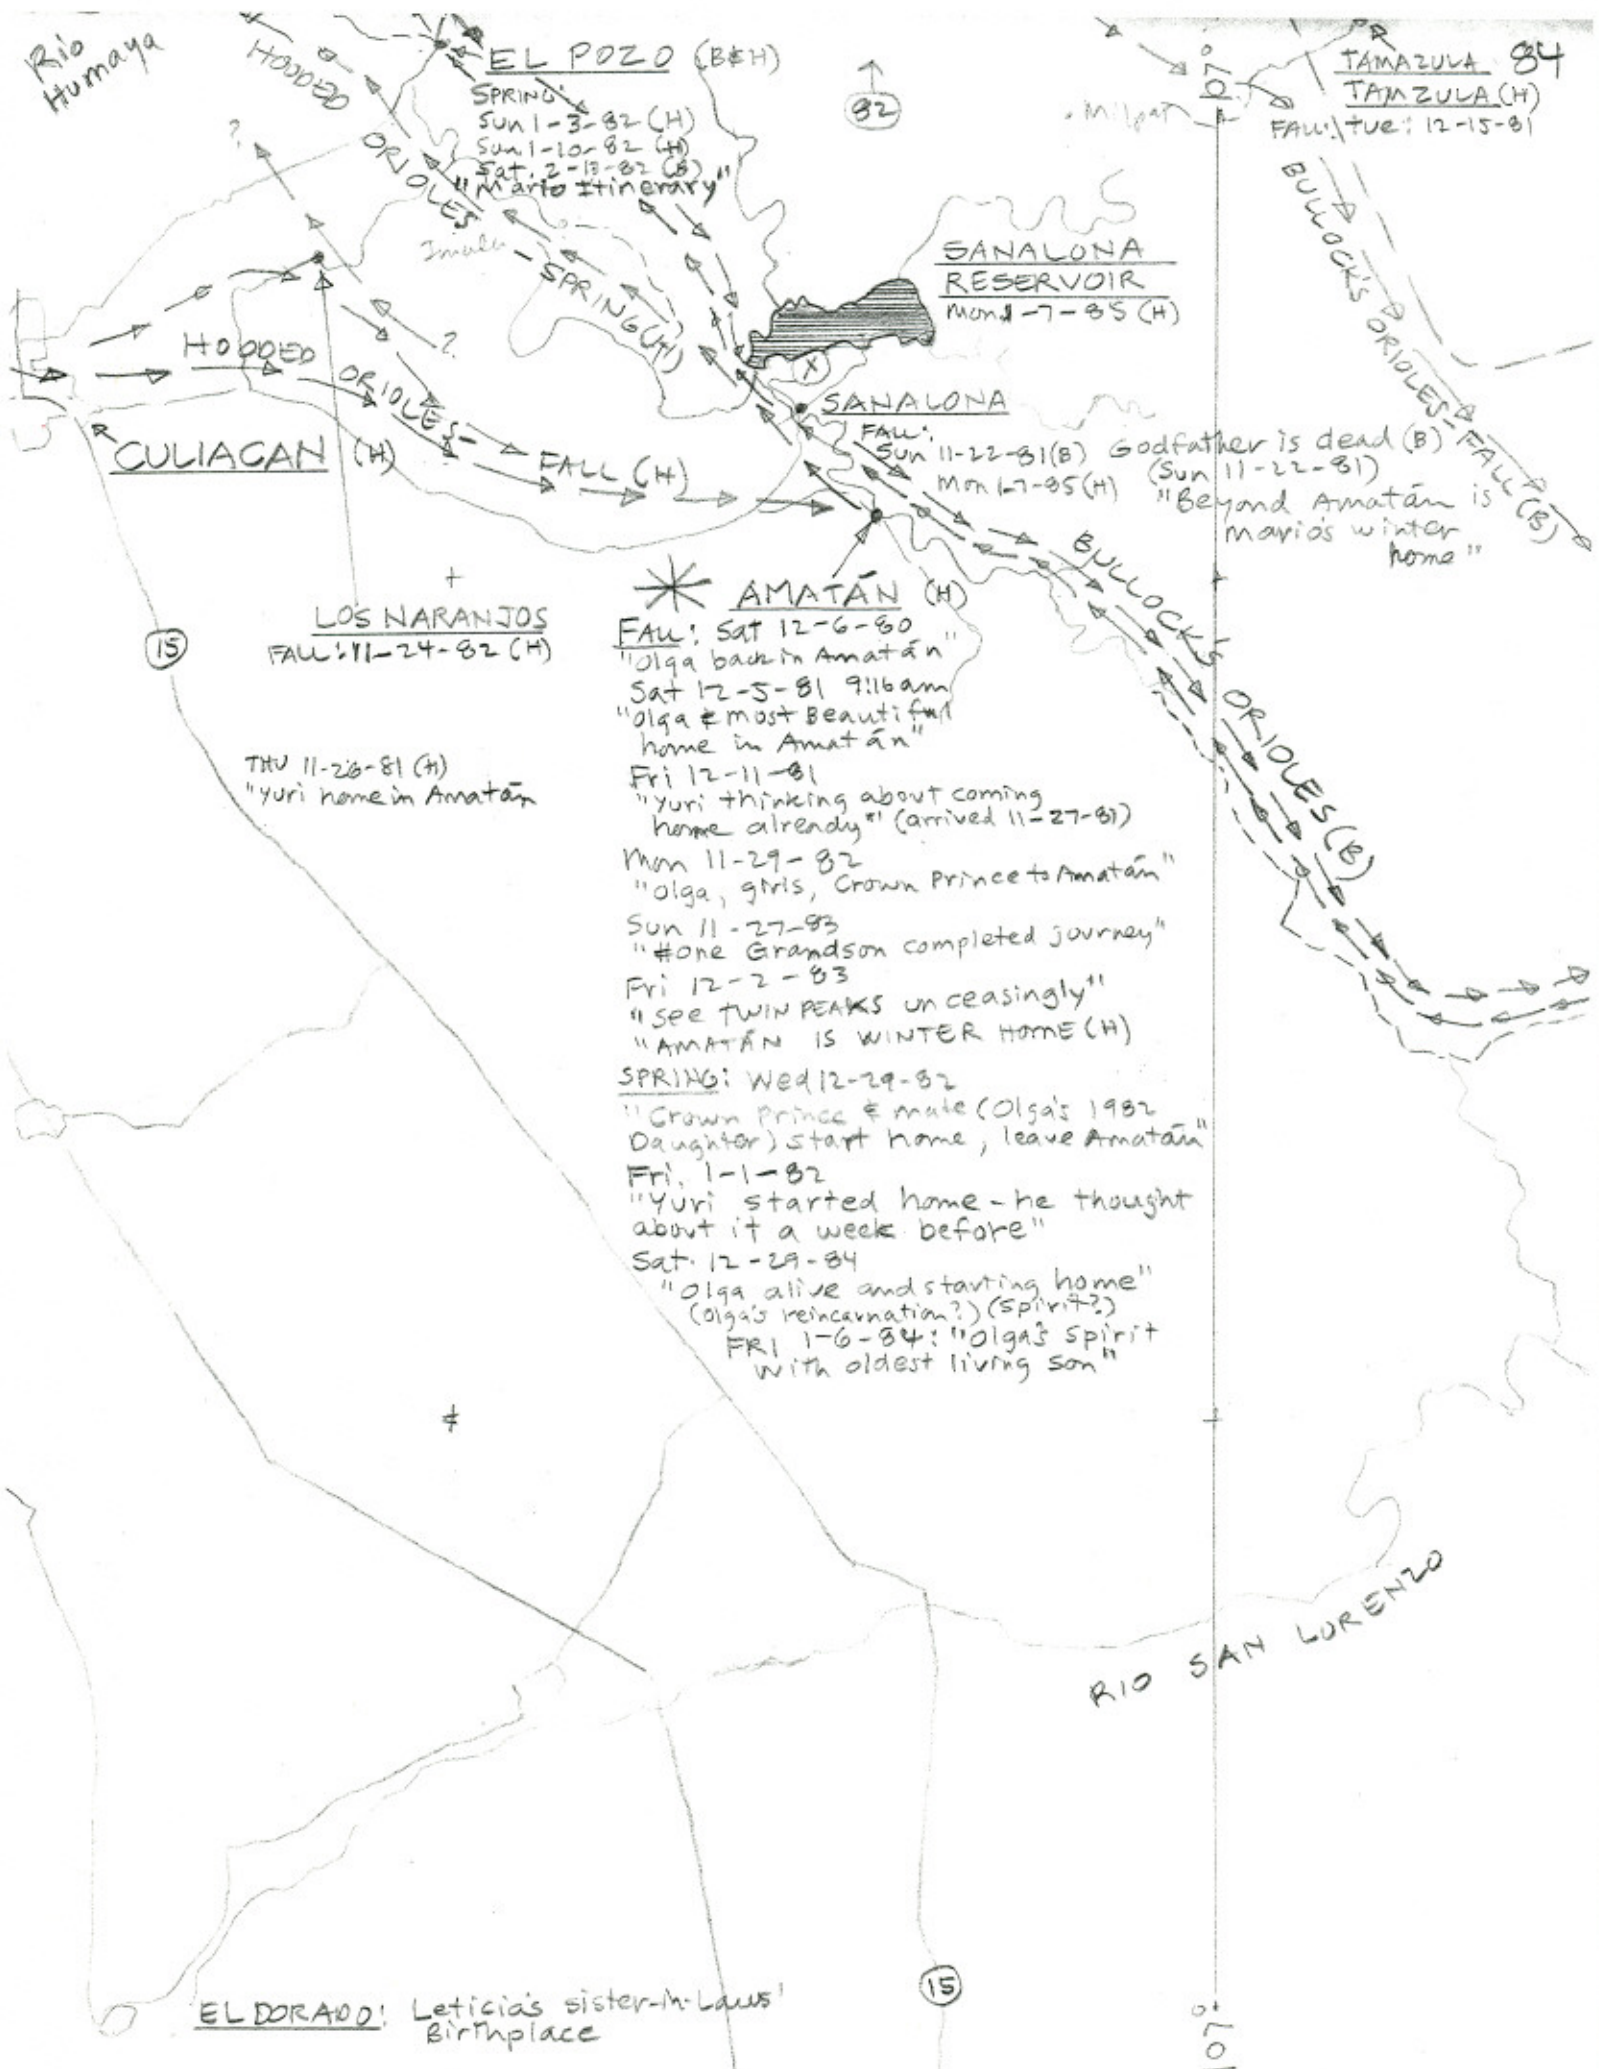 Rio
Humaya
HOODED
ORIOLES - SPRING (H)
EL POZO (B&H)
SPRING:
Sun 1-3-82 (H)
Sun 1-10-82 (H)
Sat. 2-13-82 (B)
"Mario Itinerary"
82
107°
Milpas
TAMAZULA 84
TAMZULA (H)
FALL: Tue: 12-15-81
BULLOCK'S ORIOLES - FALL (B)
?
Imala
SANALONA
RESERVOIR
Mon 1-7-85 (H)
X
?
HOODED ORIOLES - FALL (H)
SANALONA
FALL:
Sun 11-22-81 (B) Godfather is dead (B)
(Sun 11-22-81)
Mon 1-7-85 (H) "Beyond Amatán is
Mario's winter
home"
CULIACAN (H)
BULLOCK'S ORIOLES (B)
LOS NARANJOS
FALL: 11-24-82 (H)
15
THU 11-26-81 (H)
"Yuri home in Amatán
AMATÁN (H)
FALL: Sat 12-6-80
"Olga back in Amatán"
Sat 12-5-81 9:16am
"Olga & most Beautiful
home in Amatán"
Fri 12-11-81
"Yuri thinking about coming
home already" (arrived 11-27-81)
Mon 11-29-82
"Olga, girls, Crown Prince to Amatán"
Sun 11-27-83
"#one Grandson completed journey"
Fri 12-2-83
"See TWIN PEAKS unceasingly"
"AMATÁN IS WINTER HOME (H)
SPRING: Wed 12-29-82
"Crown Prince & mate (Olga's 1982
Daughter) start home, leave Amatán"
Fri. 1-1-82
"Yuri started home - he thought
about it a week before"
Sat. 12-29-84
"Olga alive and starting home"
(Olga's reincarnation?) (Spirit?)
FRI 1-6-84: "Olga's Spirit
with oldest living son"
RIO SAN LORENZO
15
EL DORADO: Leticia's sister-in-Laws'
Birthplace
107°